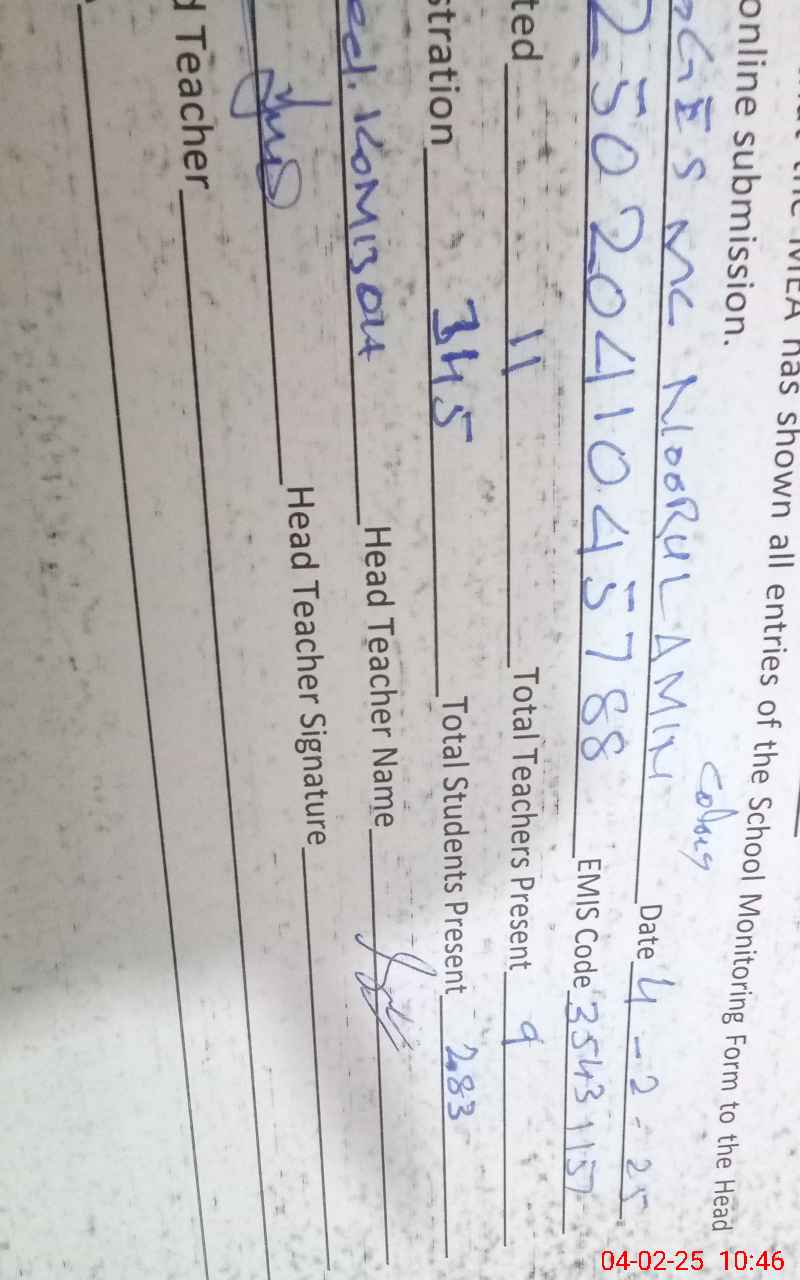 the MEA has shown all entries of the School Monitoring Form to the Head
online submission.
GES MC NOORUL AMIN Colony Date 4-2-25
2502041045788 EMIS Code 35431157
ted 11 Total Teachers Present 9
stration 345 Total Students Present 283
Head Teacher Name
Head Teacher Signature
d Teacher
04-02-25 10:46